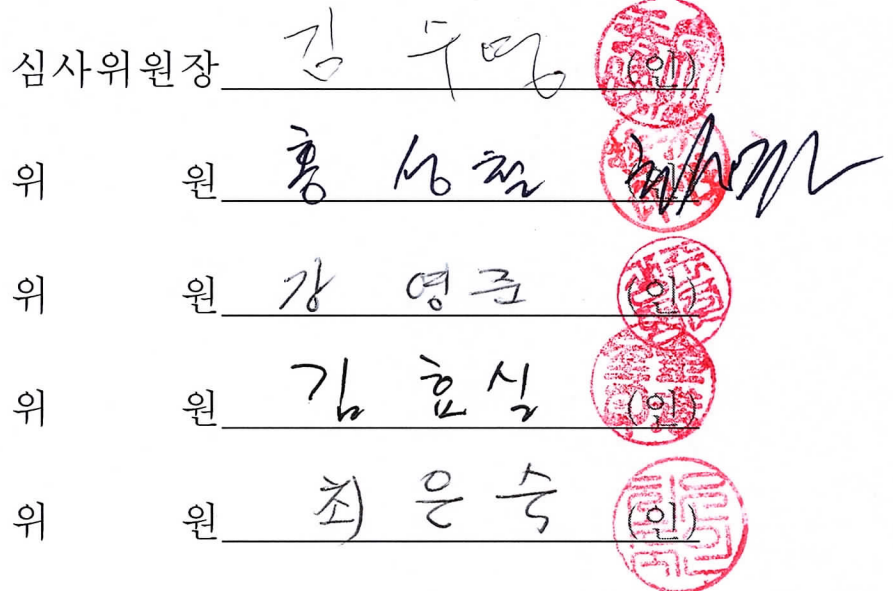 심사위원장 김 두 영 (인)
위 원 홍 성 철 (인)
위 원 강 영 준 (인)
위 원 김 효 실 (인)
위 원 최 은 숙 (인)